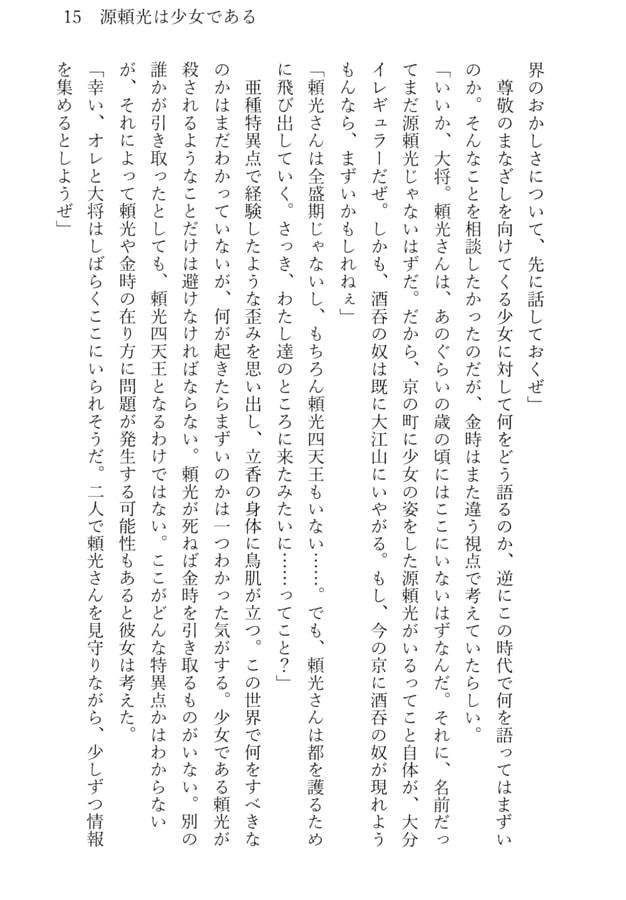 15　源頼光は少女である
界のおかしさについて、先に話しておくぜ」
　尊敬のまなざしを向けてくる少女に対して何をどう語るのか、逆にこの時代で何を語ってはまずい
のか。そんなことを相談したかったのだが、金時はまた違う視点で考えていたらしい。
「いいか、大将。頼光さんは、あのぐらいの歳の頃にはここにいないはずなんだ。それに、名前だっ
てまだ源頼光じゃないはずだ。だから、京の町に少女の姿をした源頼光がいるってこと自体が、大分
イレギュラーだぜ。しかも、酒呑の奴は既に大江山にいやがる。もし、今の京に酒呑の奴が現れよう
もんなら、まずいかもしれねぇ」
「頼光さんは全盛期じゃないし、もちろん頼光四天王もいない……。でも、頼光さんは都を護るため
に飛び出していく。さっき、わたし達のところに来たみたいに……ってこと？」
　亜種特異点で経験したような歪みを思い出し、立香の身体に鳥肌が立つ。この世界で何をすべきな
のかはまだわかっていないが、何が起きたらまずいのかは一つわかった気がする。少女である頼光が
殺されるようなことだけは避けなければならない。頼光が死ねば金時を引き取るものがいない。別の
誰かが引き取ったとしても、頼光四天王となるわけではない。ここがどんな特異点かはわからない
が、それによって頼光や金時の在り方に問題が発生する可能性もあると彼女は考えた。
「幸い、オレと大将はしばらくここにいられそうだ。二人で頼光さんを見守りながら、少しずつ情報
を集めるとしようぜ」